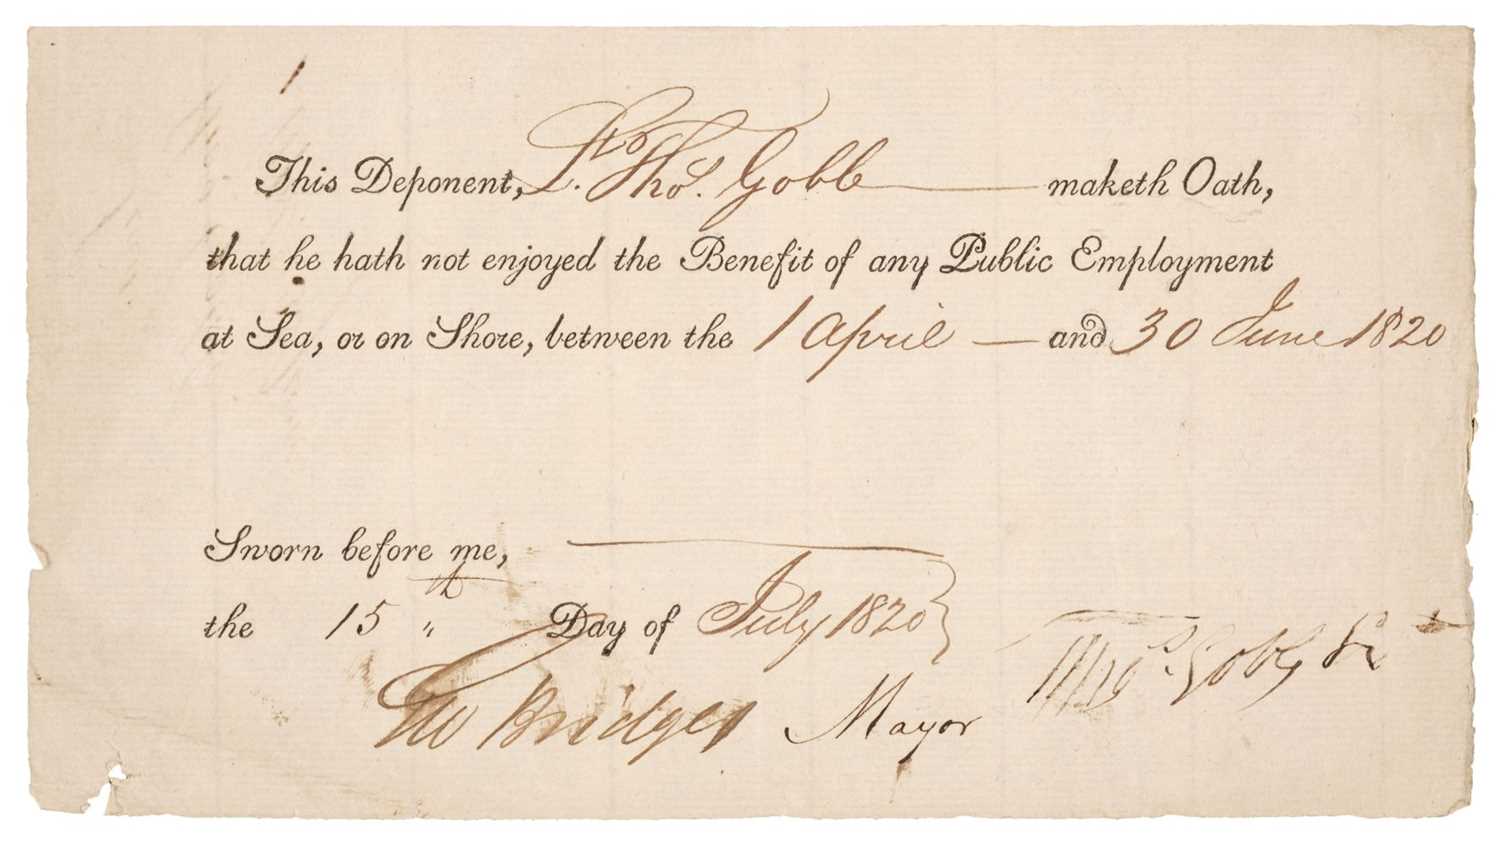 This Deponent, Lt. Thos. Gobb maketh Oath,
that he hath not enjoyed the Benefit of any Public Employment
at Sea, or on Shore, between the 1 April — and 30 June 1820
Sworn before me,
the 15th Day of July 1820
Geo Bridges Mayor
Thos. Gobb